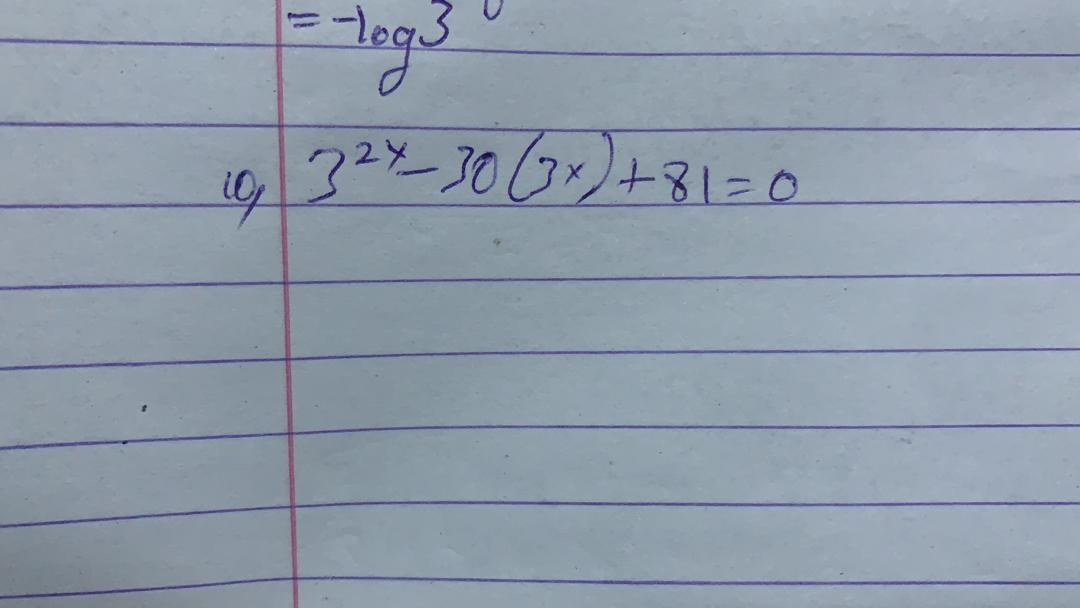 = -log3
10, 3^{2x} - 30(3x) + 81 = 0